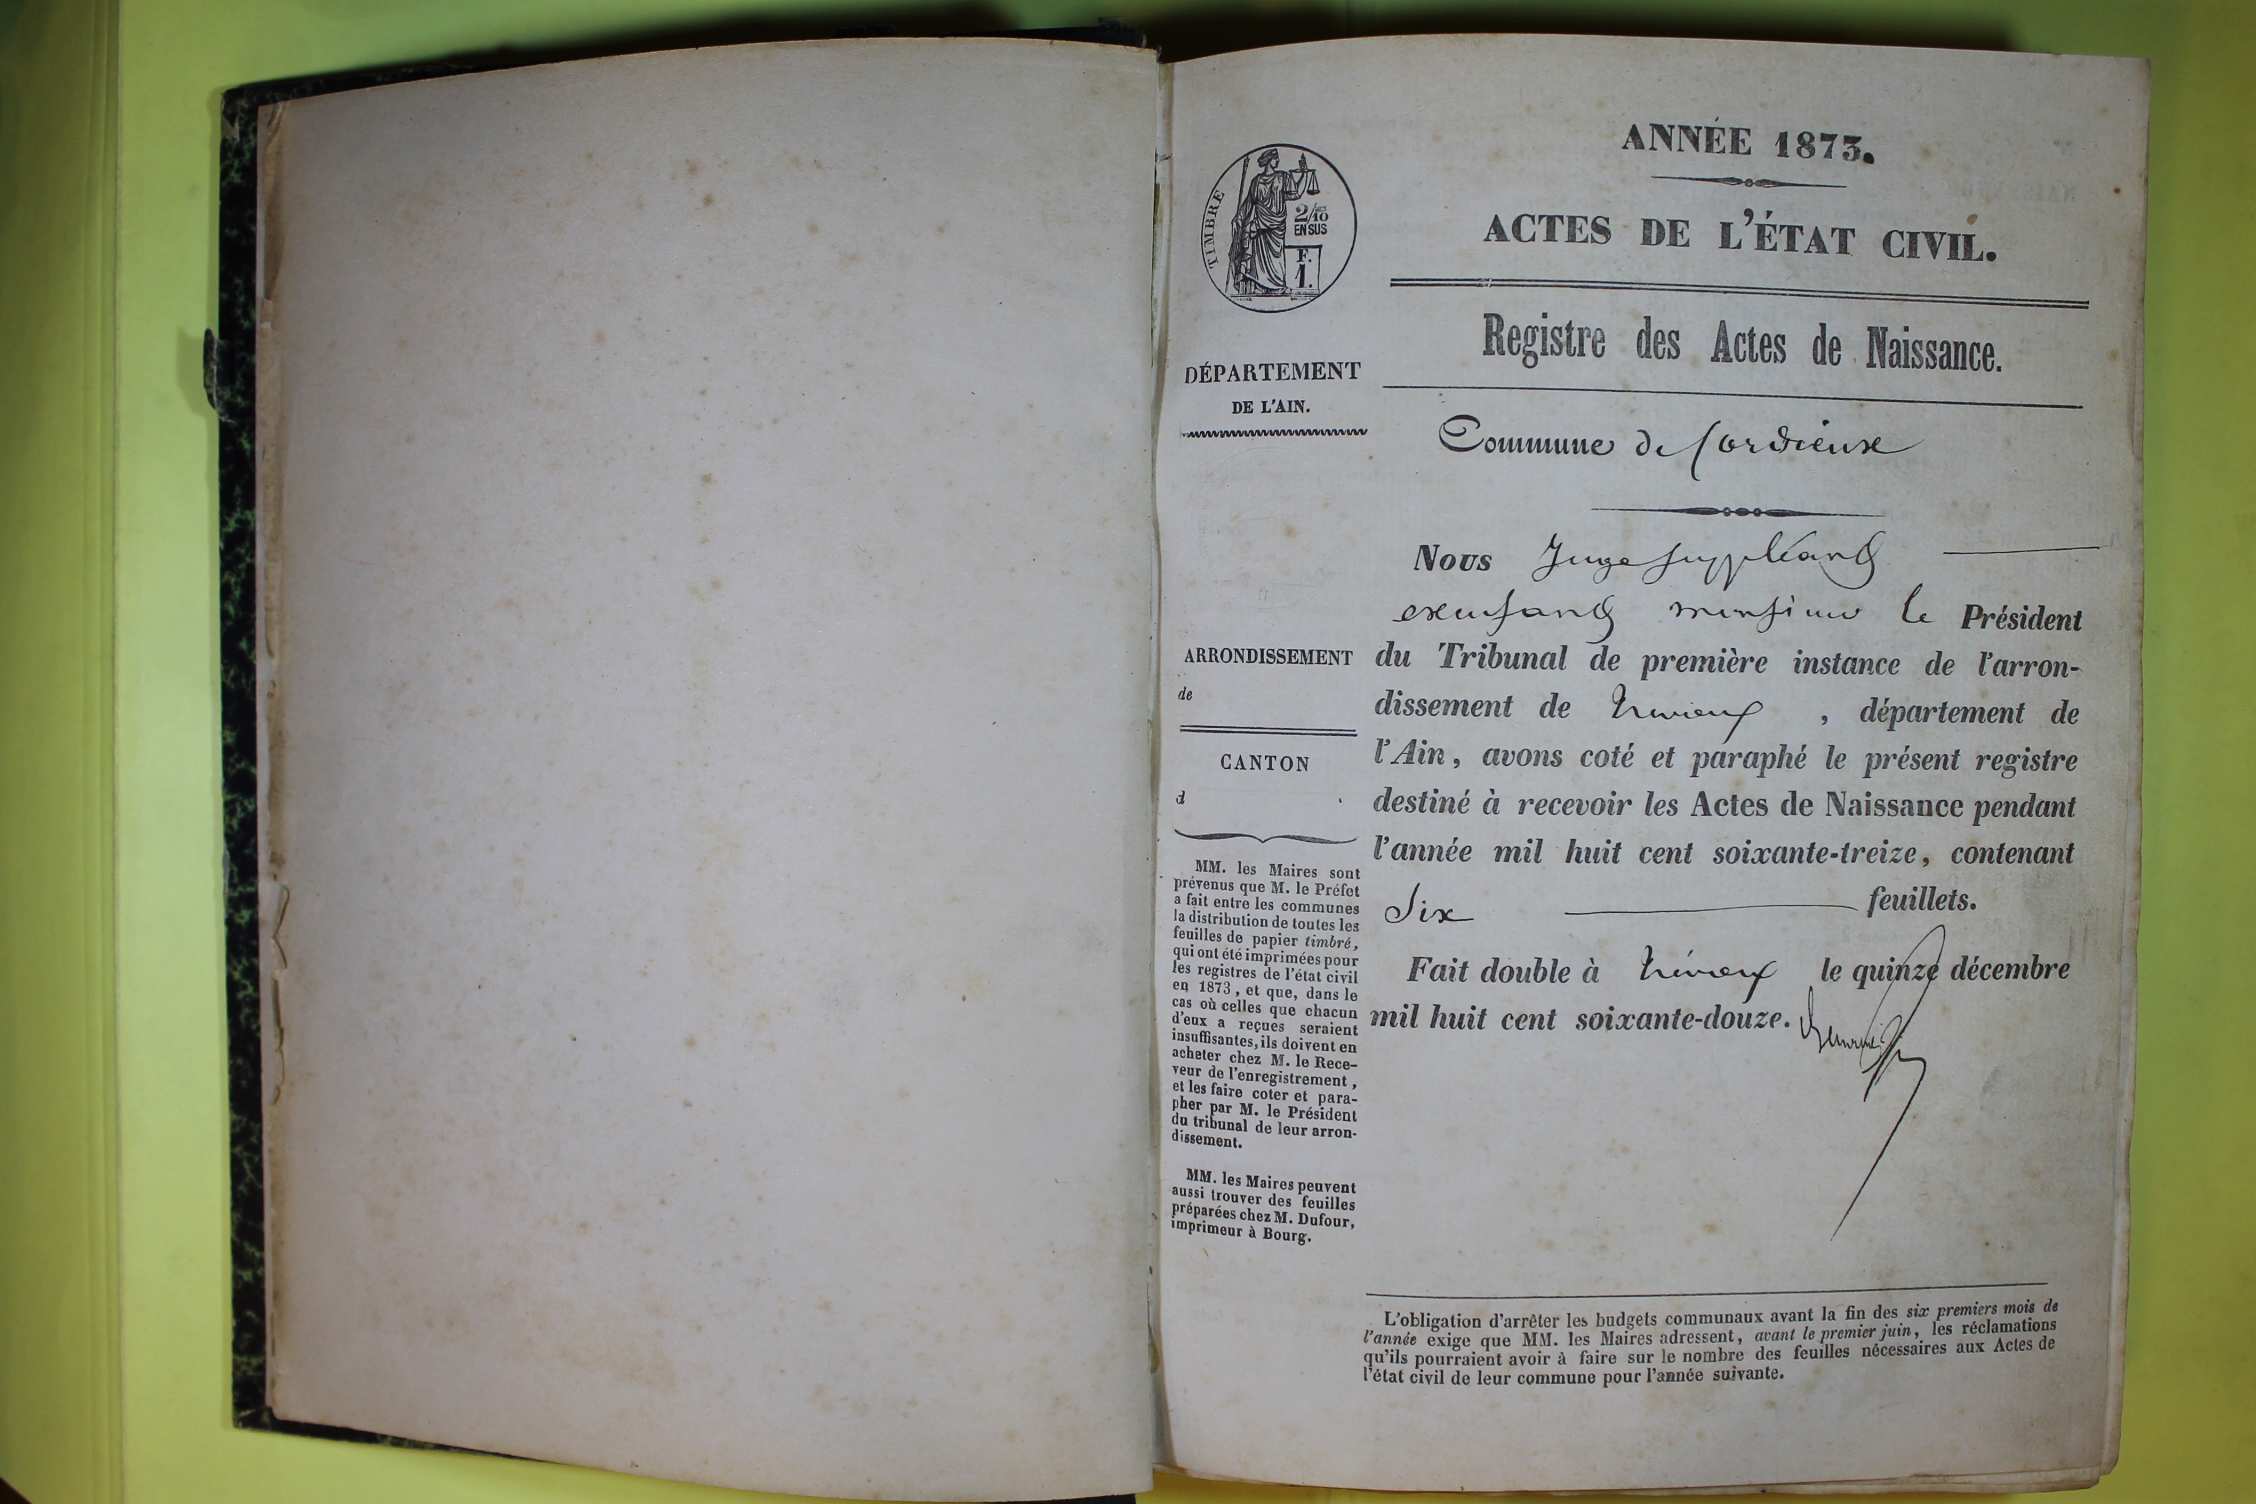 ANNÉE 1873.
ACTES DE L'ÉTAT CIVIL.
Registre des Actes de Naissance.
Commune de Cordieux
Nous Juge suppléant
remplaçant monsieur le Président
du Tribunal de première instance de l'arron-
dissement de Trévoux , département de
l'Ain, avons coté et paraphé le présent registre
destiné à recevoir les Actes de Naissance pendant
l'année mil huit cent soixante-treize, contenant
Six feuillets.
Fait double à Trévoux le quinze décembre
mil huit cent soixante-douze.
TIMBRE
2/10
EN SUS
F.
1.
DÉPARTEMENT
DE L'AIN.
ARRONDISSEMENT
de
CANTON
d
MM. les Maires sont
prévenus que M. le Préfet
a fait entre les communes
la distribution de toutes les
feuilles de papier timbré,
qui ont été imprimées pour
les registres de l'état civil
en 1873, et que, dans le
cas où celles que chacun
d'eux a reçues seraient
insuffisantes, ils doivent en
acheter chez M. le Rece-
veur de l'enregistrement,
et les faire coter et para-
pher par M. le Président
du tribunal de leur arron-
dissement.
MM. les Maires peuvent
aussi trouver des feuilles
préparées chez M. Dufour,
imprimeur à Bourg.
L'obligation d'arrêter les budgets communaux avant la fin des six premiers mois de
l'année exige que MM. les Maires adressent, avant le premier juin, les réclamations
qu'ils pourraient avoir à faire sur le nombre des feuilles nécessaires aux Actes de
l'état civil de leur commune pour l'année suivante.